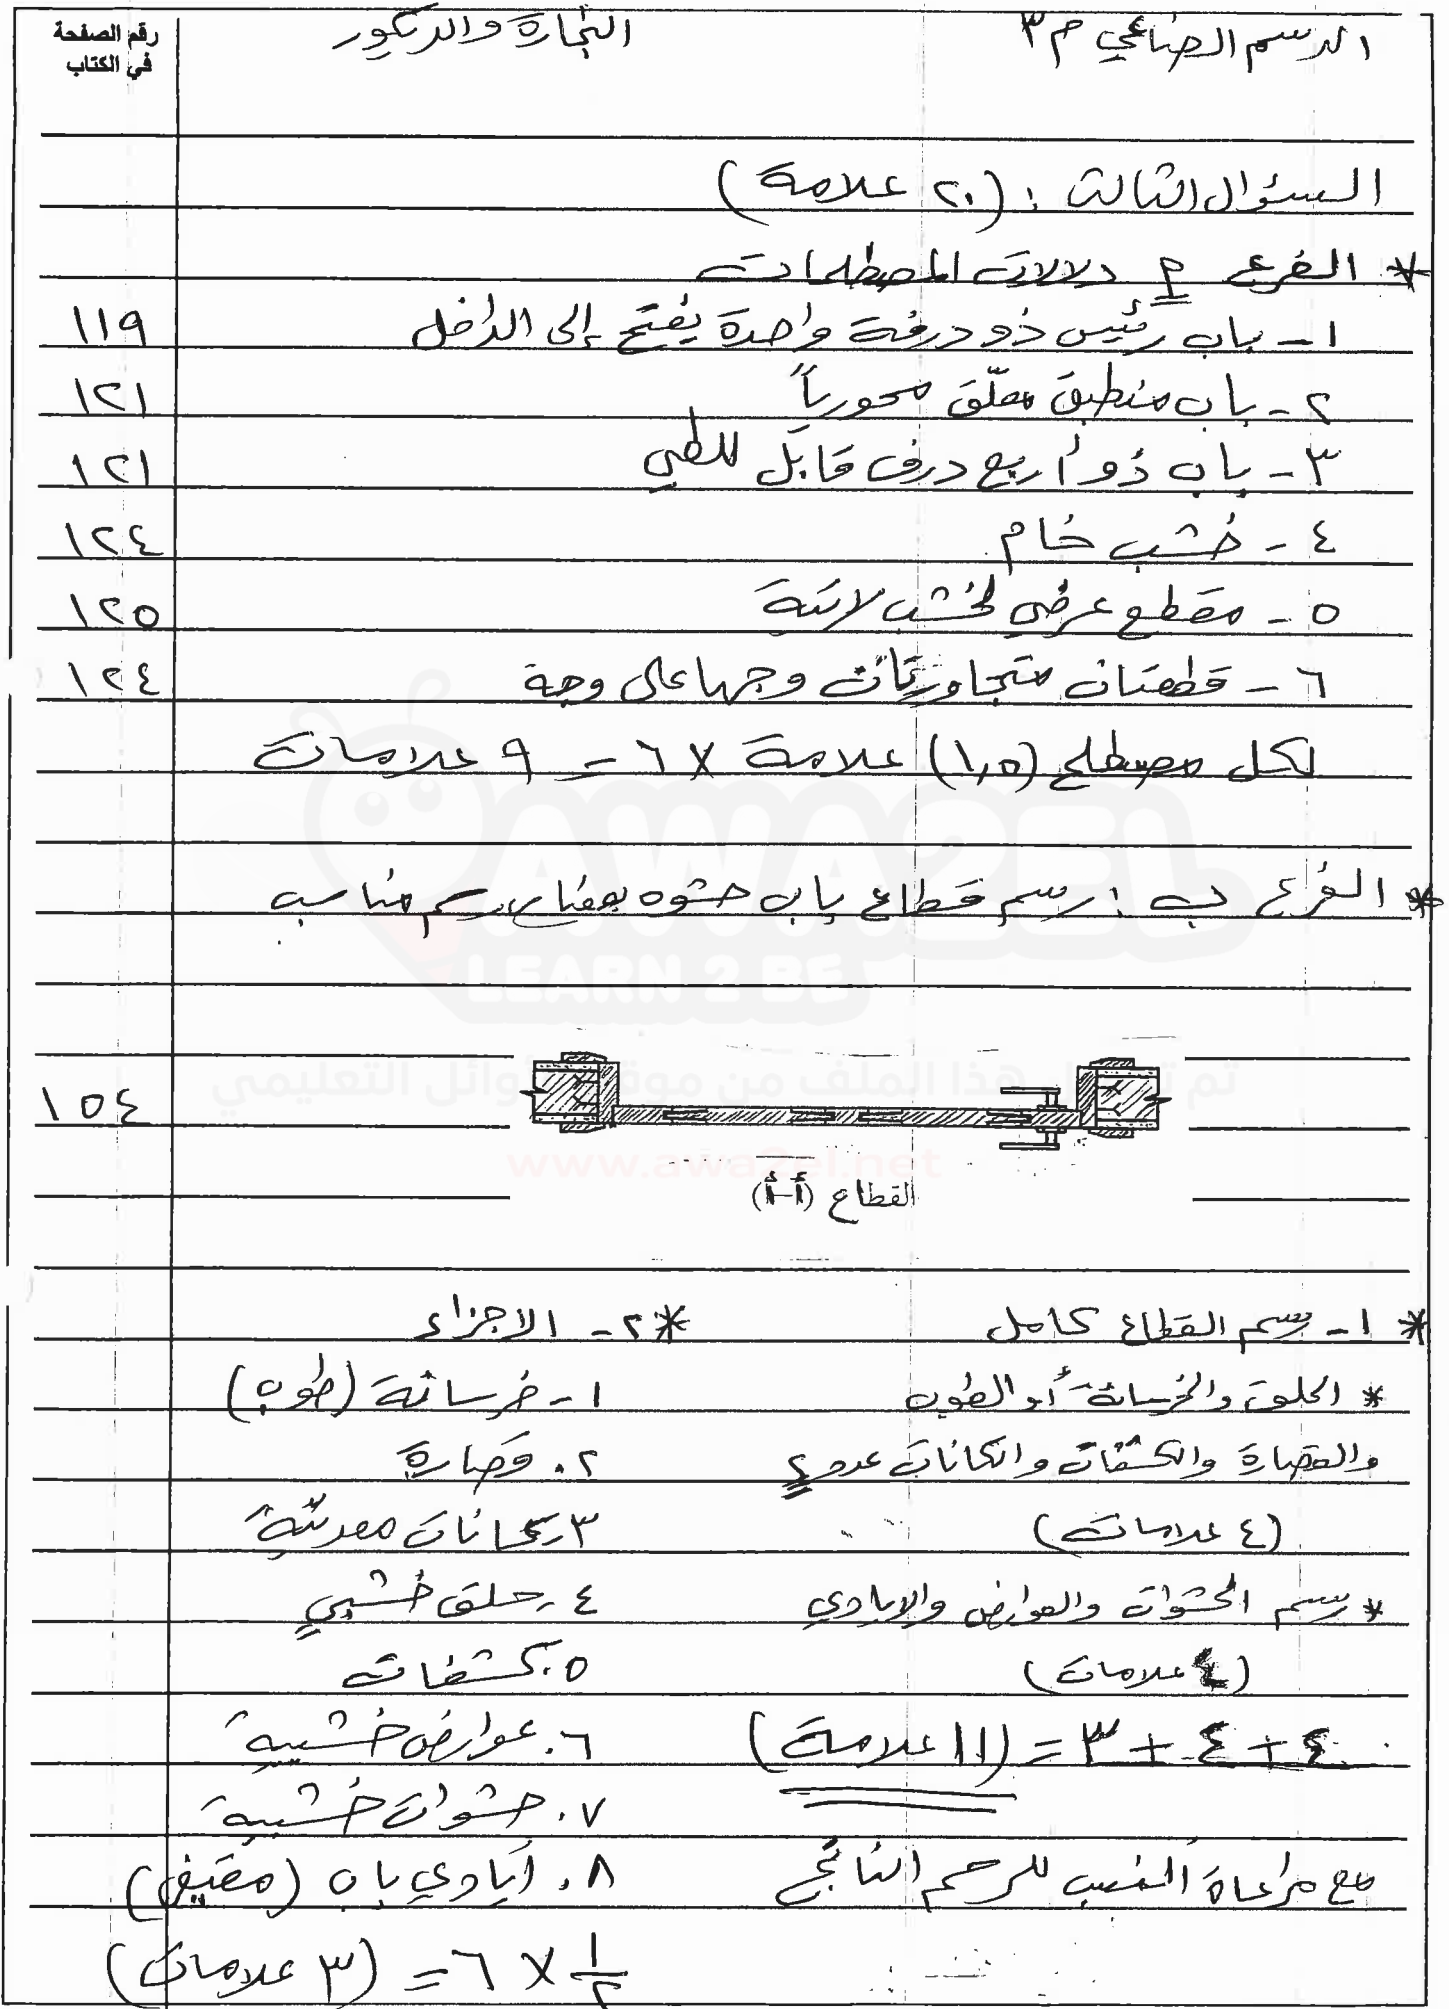 الرسم الصناعي م٣
النجارة والديكور
رقم الصفحة
في الكتاب
السؤال الثالث : (٢٠ علامة)
* الفرع أ دلالات المصطلحات
١- باب رئيس ذو درفة واحدة يفتح إلى الداخل ١١٩
٢- باب منطبق معلّق محورياً ١٢١
٣- باب ذو أربع درف قابل للطي ١٢١
٤- خشب خام ١٢٤
٥- مقطع عرضي لخشب لاتيه ١٢٥
٦- قطعتان متجاورتان وجها على وجه ١٢٤
لكل مصطلح (١,٥) علامة × ٦ = ٩ علامات
* الفرع ب : رسم قطاع باب حشوه بمقياس رسم مناسب
AWA2EL
LEARN 2 BE
تم تحميل هذا الملف من موقع أوائل التعليمي
www.awa2el.net
١٥٤
القطاع (أ-أ)
* ١- رسم القطاع كامل
* الحلق والخرسانة أو الطوب
والقصارة والكشفات والكانات عدد ٤
(٤ علامات)
* رسم الحشوات والعوارض والايادي
(٤ علامات)
٤ + ٤ + ٣ = (١١ علامة)
مع مراعاة النسب للرسم الناتج
* ٢- الاجزاء
١- خرسانة (طوب)
٢. قصارة
٣. كانات معدنية
٤. حلق خشبي
٥. كشفات
٦. عوارض خشبية
٧. حشوات خشبية
٨. أيادي باب (مقبض)
١/٢ × ٦ = (٣ علامات)